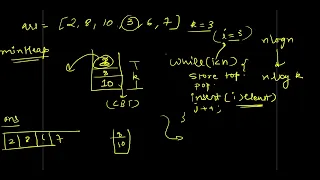 arr = [2, 8, 10, 3, 6, 7] k=3
minHeap
i=3
nlogn
while(i<n) {
store top
pop
insert(i)element
i++;
}
nlogk
k
8
10
(CBT)
ans
2 8 7
8
10